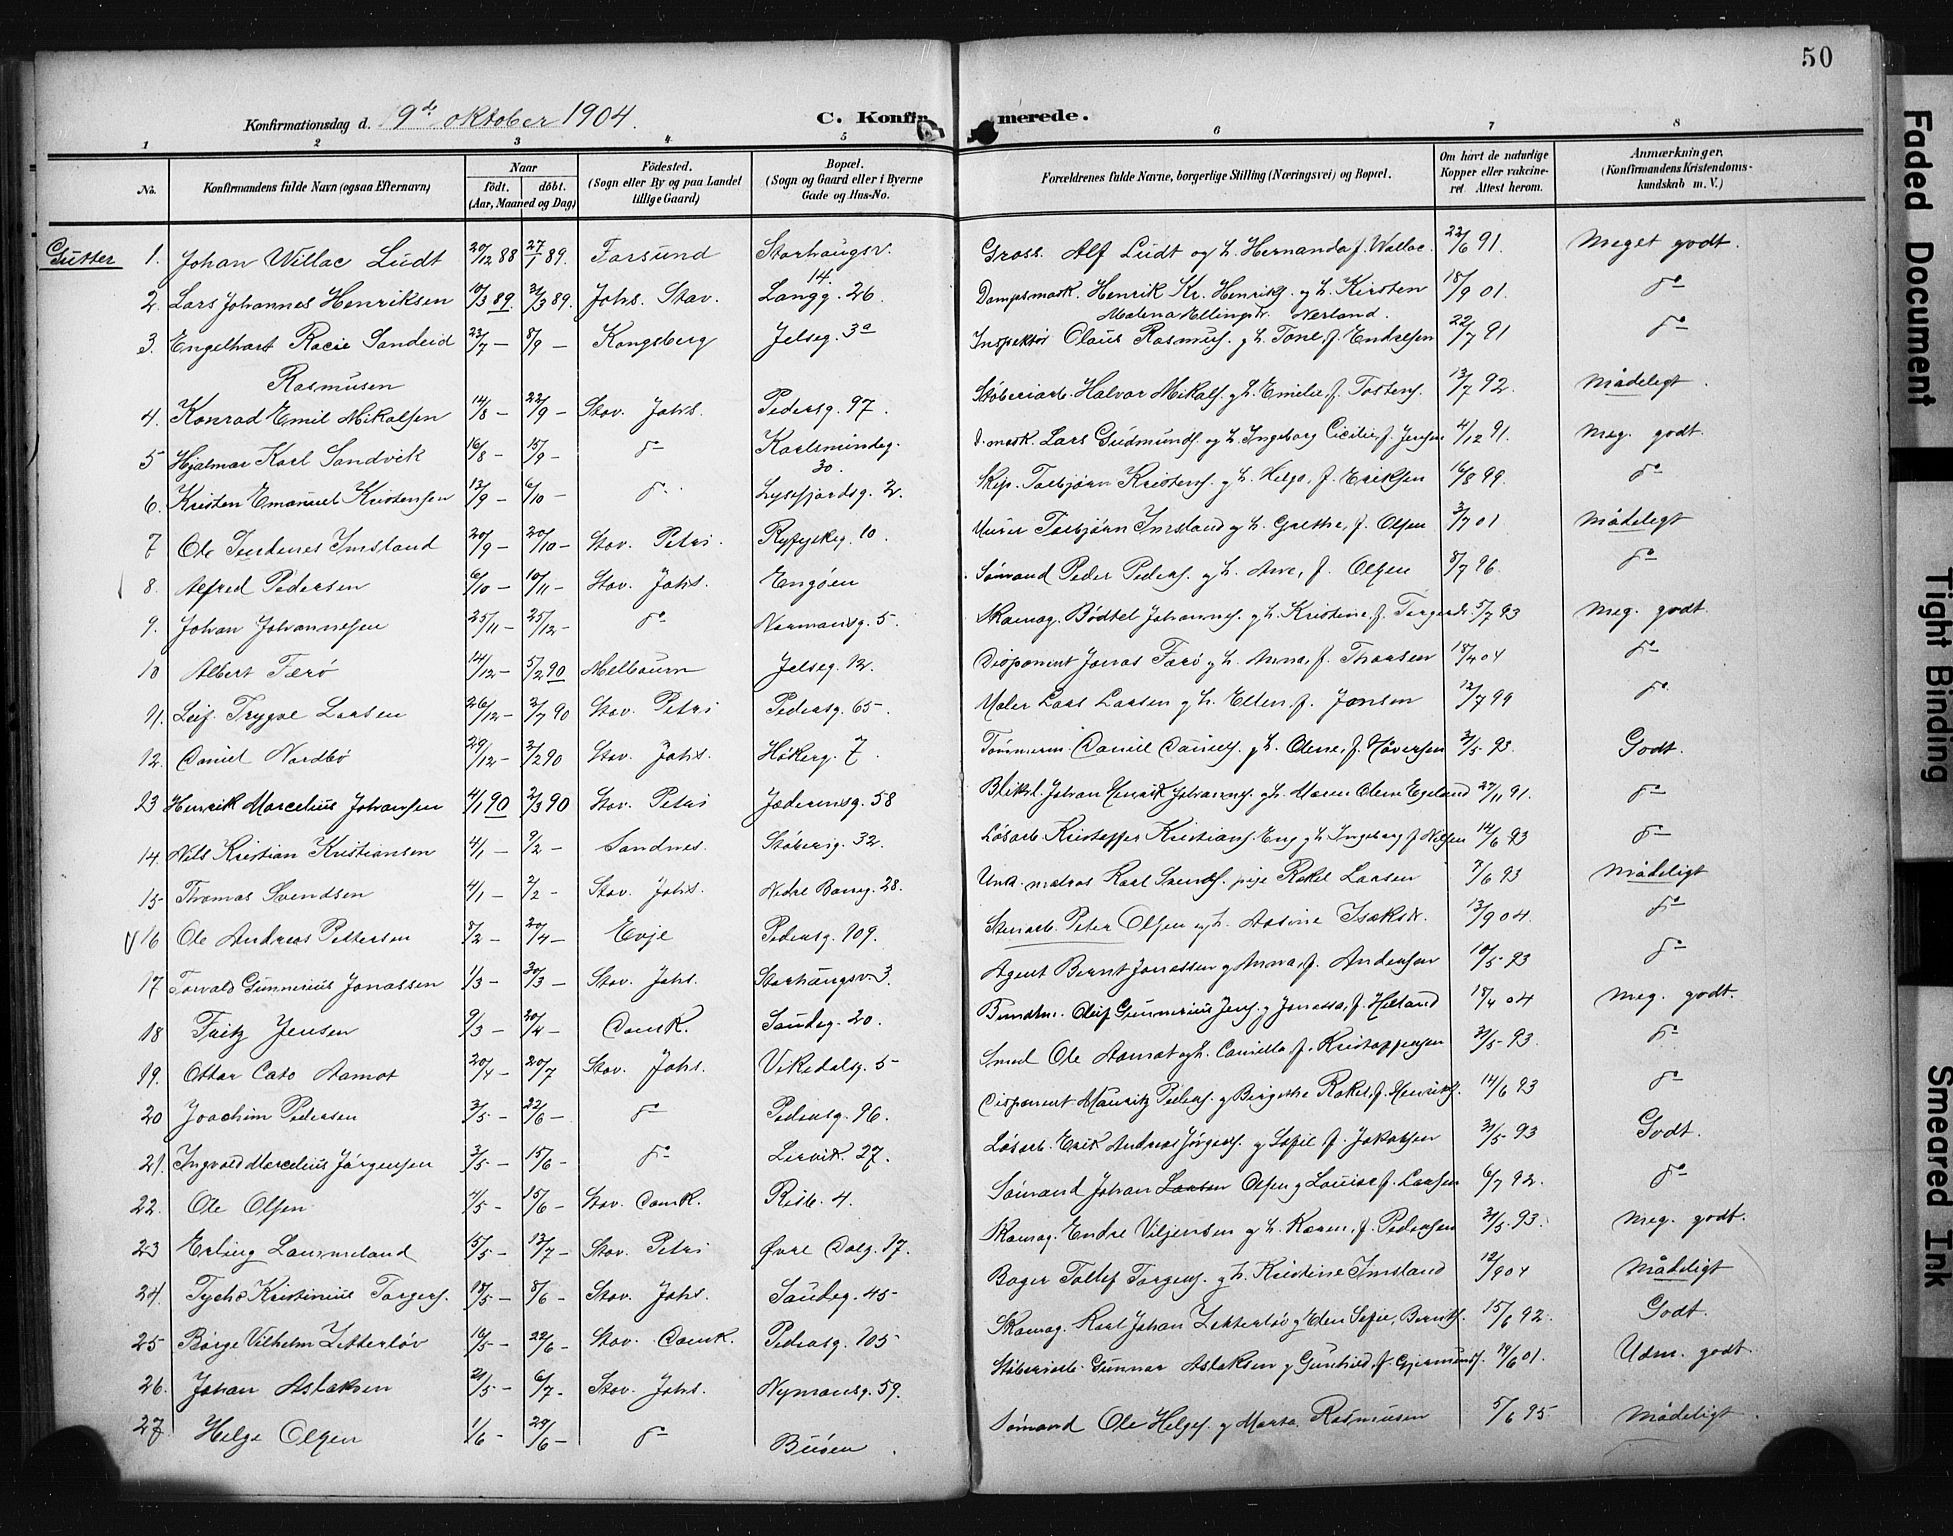 50
Konfirmationsdag d. 9de oktober 1904.
C. Konfirmerede.
1 2 3 4 5 6 7 8
No.
Konfirmandens fulde Navn (ogsaa Efternavn)
Naar
født. døbt.
(Aar, Maaned og Dag)
Fødested.
(Sogn eller By og paa Landet
tillige Gaard)
Bopæl.
(Sogn og Gaard eller i Byerne
Gade og Hus-No.
Forældrenes fulde Navne, borgerlige Stilling (Næringsvei) og Bopæl.
Om havt de naturlige
Kopper eller vakcine-
ret. Attest herom.
Anmærkninger.
(Konfirmandens Kristendoms-
kundskab m. V.)
Gutter
1. Johan Willac Lüdt 20/12 88 27/1 89. Farsund Storhaugsv. 14. Alf Lüdt og h. Hernanda f. Wallac. 22/6 91. Meget godt.
2. Lars Johannes Henriksen 10/3 89. 31/3 89. Johs. Stav. Langg. 26. Dampsmask. Henrik Kr. Henriks. og h. Kirsten 18/9 01. do
Malena Ellingsdr. Nerland.
3. Engelhart Racie Sandeid 23/7 — 8/9 — Kongsberg Jelseg. 3a Inspektør Olaus Rasmus. g h. Tone, f. Endresen 22/7 91 do
Rasmusen
4. Konrad Emil Mikalsen 14/8 — 22/9 — Stav. Johs. Pedersg. 97. Støberiarb. Halvor Mikals. g h. Emilie, f. Tostens. 13/7 92. Mådeligt.
5 Hjalmar Karl Sandvik 16/8 — 15/9 — do Karlsmindeg. 30. Lars Gudmunds. og h. Ingeborg Cicilie, f. Jensen 4/12 91. Meg. godt.
6. Kristen Emanuel Kristensen 13/9 — 6/10 — do Lysefjordsg. 2. Skip. Torbjørn Kristens. g h. Helga, f. Eriksen 16/8 99. do
7 Ole Tendenes Imsland 20/9 — 20/10 — Stav. Petri. Ryfylkeg. 10. Murer Torbjørn Imsland og h. Grethe, f. Olsen 3/7 01 Mådeligt
8. Alfred Pedersen 6/10 — 10/11 — Stav. Johs. Engøen Sømand Peder Peders. g h. Ane, f. Olsen 8/7 96. do
9. Johan Johannesen 25/11 — 25/12 — do Normansg. 5. Skomag. Bødtel Johanns. g h. Kristine, f. Torgersdr. 5/7 93 Meg. godt.
10 Albert Færø 14/12 — 5/2 90 Melbourn Jelseg. 12. Disponent Jonas Færø g h. Anna, f. Thorsen 18/4 04 do
11. Leif Trygve Larsen 26/12 — 2/7 90 Stav. Petri Pedersg. 65 Maler Lars Larsen g h. Ellen, f. Jonsen 12/7 99 do
12. Daniel Nordbø 29/12 — 2/2 90 Stav. Johs. Høkerg. 7. Tømmerm. Daniel Daniels. g h. Olene, f. Haversen 31/5 93. Godt.
23 Henrik Marcelius Johansen 4/1 90 2/3 90 Stav. Petri Jæderensg. 58 Blikksl. Johan Henrik Johanns. g h. Maren Olene Egeland 27/11 91. do
14 Nils Kristian Kristiansen 4/1 — 9/2 — Sandnes. Støberig. 32. Løsarb. Kristoffer Kristians. Eng g h. Ingeborg f. Nilsen 14/6 93 do
15 Thomas Svendsen 4/1 — 2/2 — Stav. Johs. Nedre Baneg. 28. matros Karl Svends. pige Rakel Larsen 7/6 93 Mådeligt
V 16 Ole Andreas Pettersen 8/2 — 20/4 — Evje Pedersg. 109. Stenarb. Peter Olsen og h. Aasine Isaksdr. 13/9 04. do
17 Torvald Gunnerius Jonassen 1/3 — 30/3 — Stav. Johs. Storhaugsv. 3. Agent Bernt Jonassen g Anna, f. Andersen 10/5 93 do
18 Fritz Jensen 9/3 — 20/4 — Domk. Sandeg. 20. Oluf Gunnerius Jens. g Jonetta, f. Helland 18/4 04 Meg. godt.
19. Ottar Cato Aamot 20/4 — 20/7 Stav. Johs. Vikedalsg. 5 Smed Ole Aamot og h. Camilla f. Kristoffersen 31/5 93. do
20 Joachim Pedersen 3/5 — 22/6 — do Pedersg. 96. Disponent Mauritz Peders. g Birgithe Rakel, f. Henriks. 14/6 93 do
21. Ingvald Marcelius Jørgensen 3/5 — 15/6 — do Lervik. 27. Løsarb. Erik Andreas Jørgens. g Sofie f. Jakobsen 31/5 93 Godt.
22. Ole Olsen 4/5 — 15/6 — Stav. Domk. Risb. 4. Sømand Johan Larsen Olsen g Louise, f. Larsen 6/7 92. do
23 Erling Lammeland 15/5 — 13/7 — Stav. Petri Øvre Dalg. 17. Skomag. Endre Viljensen og h. Karen, f. Pedersen 31/5 93. Meg. godt.
24. Tycho Kristinius Torgers. 18/5 — 8/6 — Stav. Johs. Sandeg. 45 Bager Tollef Torgers. g h. Kristine Imsland 12/9 04 Mådeligt
25 Børge Vilhelm Zetterløv 16/5 — 22/6 — Stav. Domk. Pedersg. 105 Skomag. Karl Johan Zetterløv g Elen Sofie, Bernts. 15/6 92. Godt.
26. Johan Aslaksen 21/5 — 6/7 — Stav. Johs. Nymansg. 59. Støberiarb. Gunnar Aslaksen g Gunhild, f. Gjermunds. 19/6 01. Udm. godt
27 Helge Olsen 1/6 — 29/6 — do Buøen. Sømand Ole Helges. g Marta Rasmusen 5/6 95 Mådeligt.
Faded Document
Tight Binding
Smeared Ink